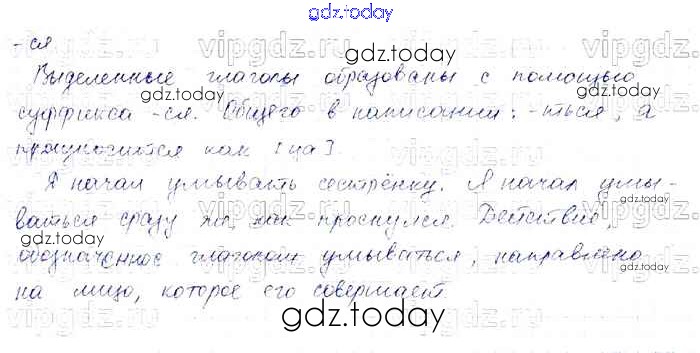 gdz.today
-ся
vipgdz.ru vipgdz.ru
gdz.today
Выделенные глаголы образованы с помощью
gdz.today gdz.today
суффикса -ся. Общего в написании: -ться, а
произносится как [ца].
Я начал умывать сестрёнку. Я начал умы-
ваться сразу же, как проснулся. Действие,
gdz.today
обозначенное глаголом умываться, направлено
gdz.today
на лицо, которое его совершает.
gdz.today